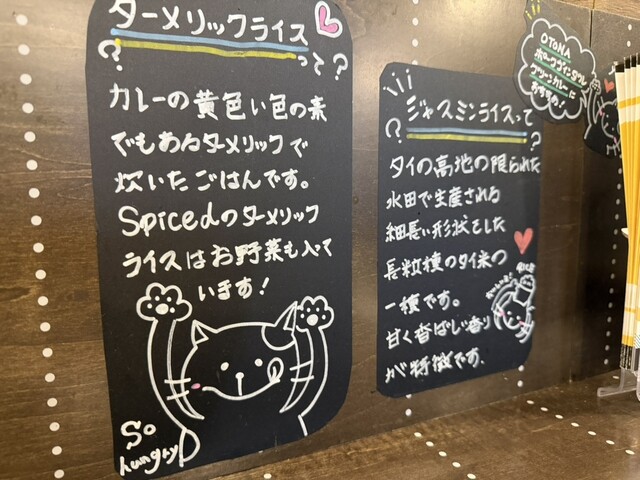 ターメリックライス
って?
カレーの黄色い色の素
でもあるターメリックで
炊いたごはんです。
Spicedのターメリック
ライスはお野菜も入って
います!
So
hungry
ジャスミンライスって
?
タイの高地の限られた
水田で生産される
細長い形状をした
長粒種のタイ米の
一種です。
甘く香ばしい香り
が特徴です。
OTONA
グリーンカレーに
おすすめ!